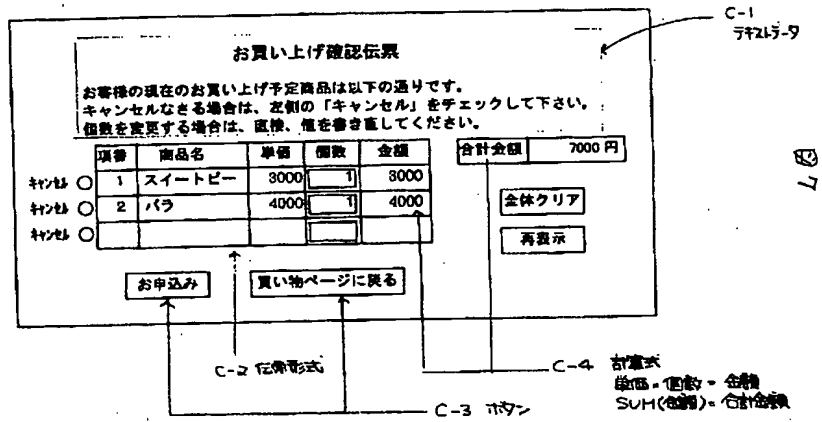 C-1
テキストデータ
お買い上げ確認伝票
お客様の現在のお買い上げ予定商品は以下の通りです。
キャンセルなさる場合は、左側の「キャンセル」をチェックして下さい。
個数を変更する場合は、直接、値を書き直してください。
項番 商品名 単価 個数 金額 合計金額 7000 円
キャンセル 1 スイートピー 3000 1 3000
キャンセル 2 バラ 4000 1 4000 全体クリア
キャンセル 再表示
お申込み 買い物ページに戻る
図7
C-2 伝票形式
C-4 計算式
単価 * 個数 = 金額
SUM(金額) = 合計金額
C-3 ボタン